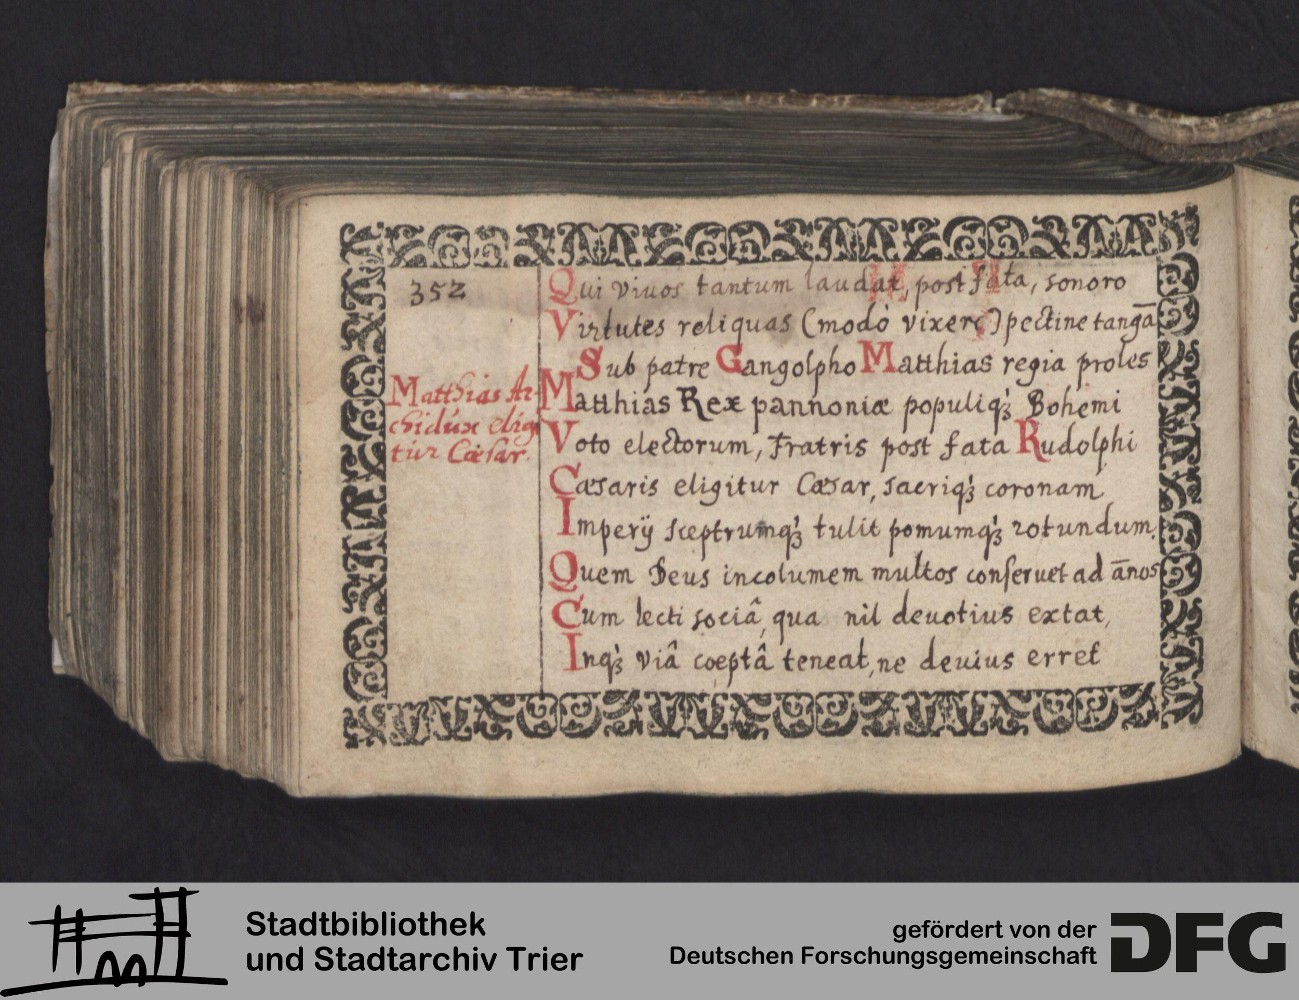 352
Qui viuos tantum laudat, post fata, sonoro
Virtutes reliquas (modò vixere) pectine tangā
Sub patre Gangolpho Matthias regia proles
Matthias Ar-
chidux elig
tur Cæsar.
Matthias Rex pannoniæ populiqꝫ Bohemi
Voto electorum, Fratris post fata Rudolphi
Cæsaris eligitur Cæsar, sacriqꝫ coronam
Imperÿ sceptrumqꝫ tulit pomumqꝫ rotundum.
Quem Deus incolumem multos conseruet ad āños
Cum lecti sociâ, qua nil deuotius extat,
Inqꝫ viâ cœptâ teneat, ne deuius erret
Stadtbibliothek
und Stadtarchiv Trier
gefördert von der
Deutschen Forschungsgemeinschaft
DFG